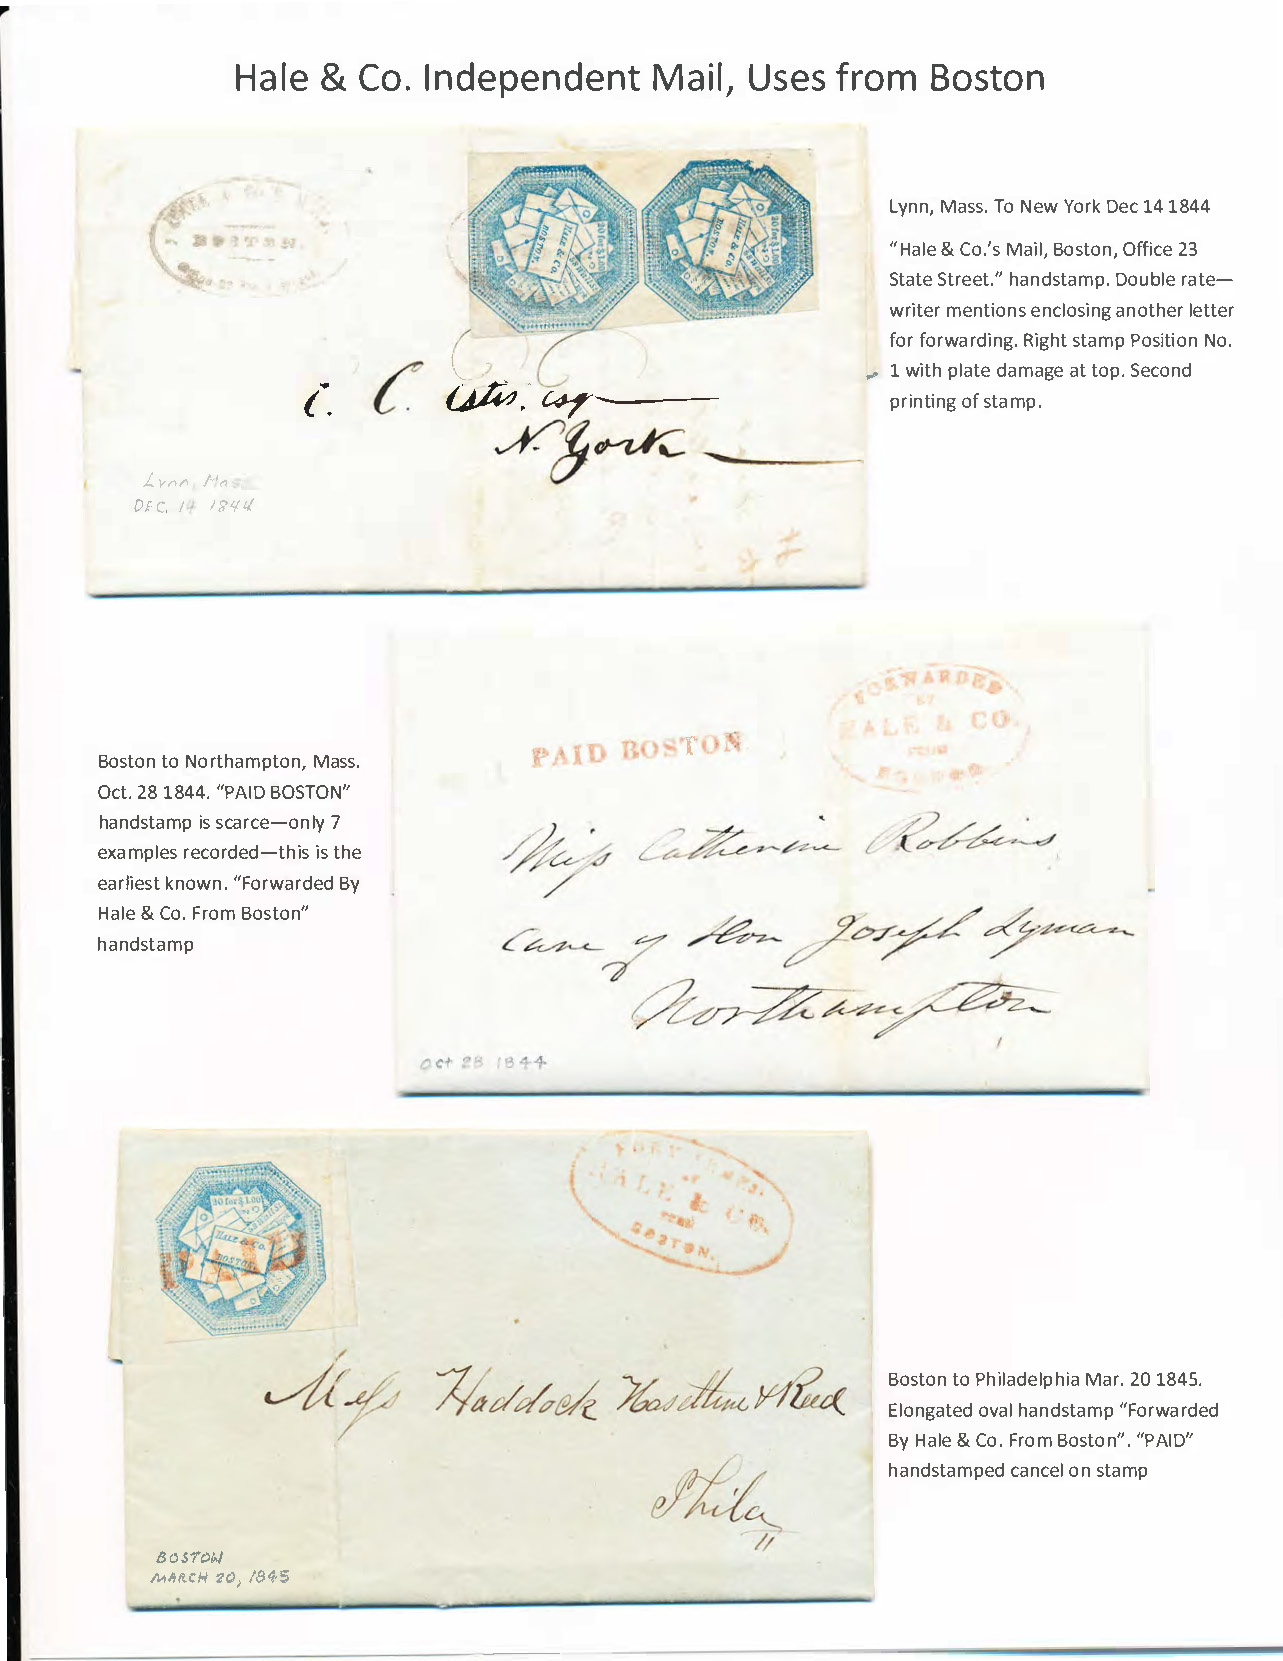 Hale & Co. Independent Mail, Uses from Boston
HALE & Co's MAIL
BOSTON.
20 for $1.00
HALE & Co.
BOSTON.
20 for $1.00
HALE & Co.
BOSTON.
C. Estes, Esq
N. York
Lynn, Mass
DEC. 14 1844
Lynn, Mass. To New York Dec 14 1844
“Hale & Co.’s Mail, Boston, Office 23
State Street.” handstamp. Double rate—
writer mentions enclosing another letter
for forwarding. Right stamp Position No.
1 with plate damage at top. Second
printing of stamp.
PAID BOSTON
FORWARDED
BY
HALE & CO.
FROM
BOSTON
Miss Catherine Robbins
Care of Hon Joseph Lyman
Northampton
Oct 28 1844
Boston to Northampton, Mass.
Oct. 28 1844. “PAID BOSTON”
handstamp is scarce—only 7
examples recorded—this is the
earliest known. “Forwarded By
Hale & Co. From Boston”
handstamp
20 for $1.00
HALE & Co.
BOSTON.
PAID
FORWARDED
BY
HALE & CO.
FROM
BOSTON.
Mess Haddock Haseltine & Reed
Phila
BOSTON
MARCH 20, 1845
Boston to Philadelphia Mar. 20 1845.
Elongated oval handstamp “Forwarded
By Hale & Co. From Boston”. “PAID”
handstamped cancel on stamp